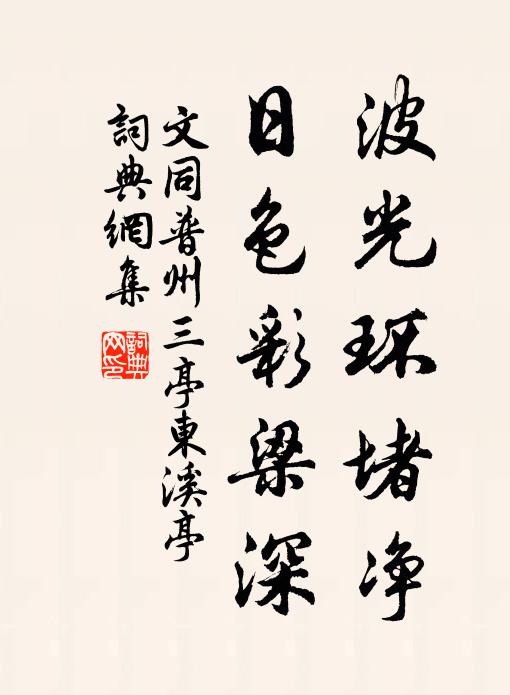 波光环堵净
日色彩梁深
文同普州三亭東溪亭
詞典網集
詞典網印